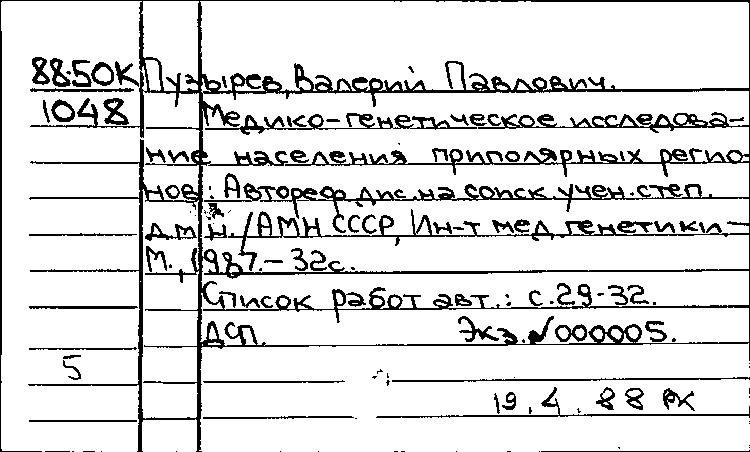 88-50К Пузырев, Валерий Павлович.
1048 Медико-генетическое исследова-
ние населения приполярных регио-
нов: Автореф. дис. на соиск. учен. степ.
д.м.н. / АМН СССР, Ин-т мед. генетики. –
М., 1987. – 32с.
Список работ авт.: с. 29-32.
ДСП. Экз. №000005.
5
19.4.88 РК